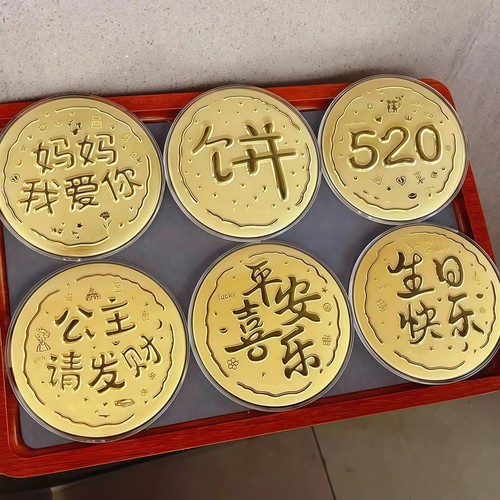 妈妈
我爱你
饼
520
公主
请发财
Lucky
平安
喜乐
生日
快乐